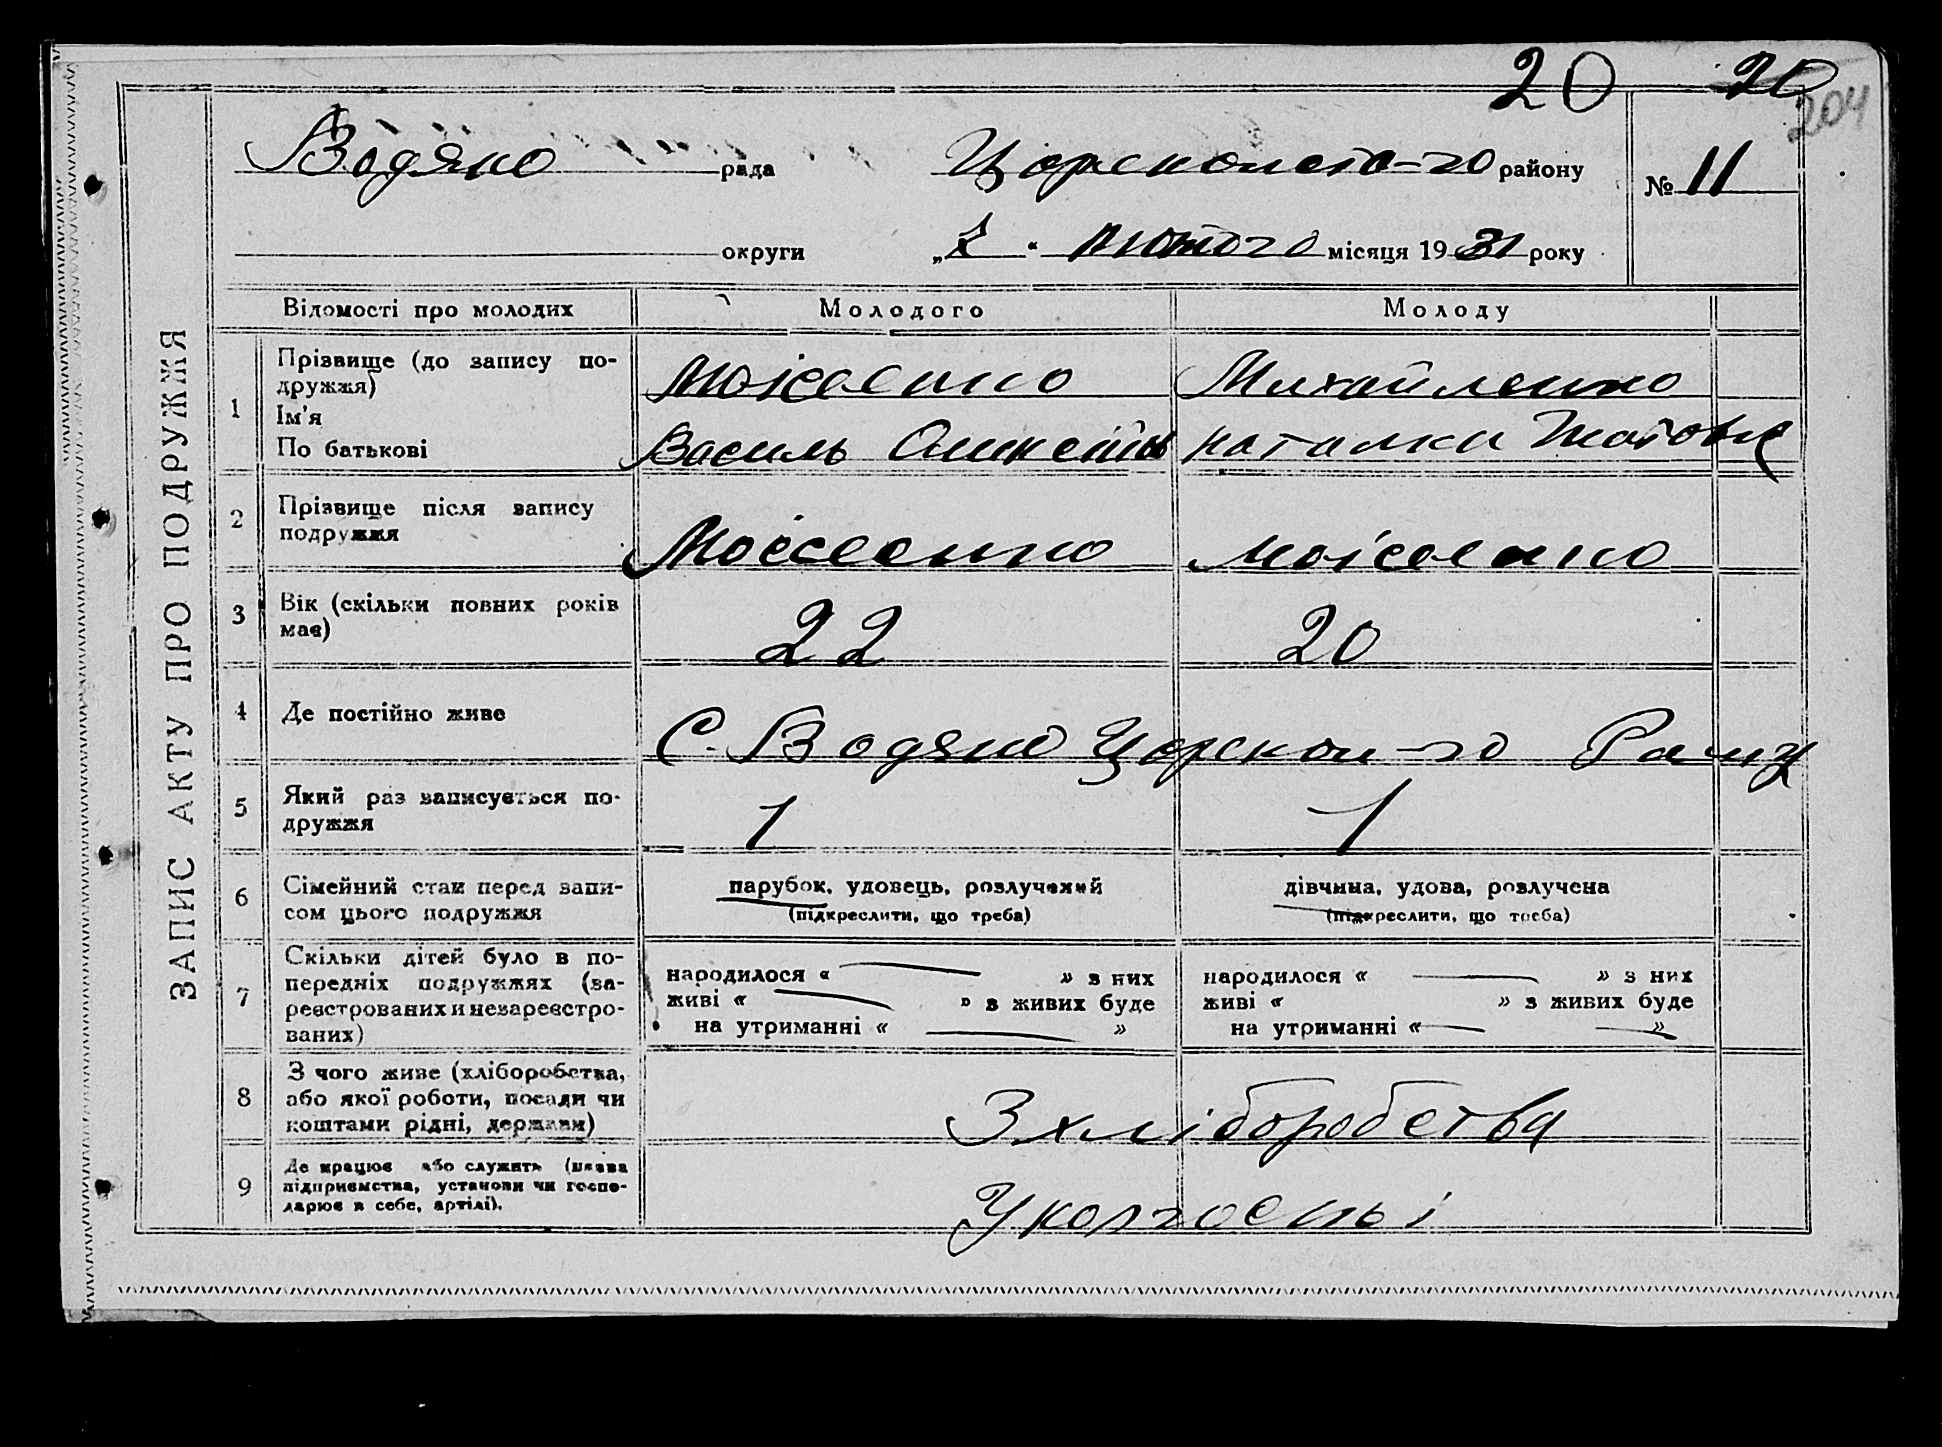 20 20
204
Водяно рада Царсконето-го району № 11
округи „2“ лютого місяця 1931 року
ЗАПИС АКТУ ПРО ПОДРУЖЖЯ
Відомості про молодих Молодого Молоду
1 Прізвище (до запису по-
дружжя)
Ім'я
По батькові
Моісеенко Михайленко
Василь Наталки
2 Прізвище після запису
подружжя
Моісеенко Моісеенко
3 Вік (скільки повних років
має)
22 20
4 Де постійно живе
С. Водяно Царскон-го Раену
5 Який раз записується по-
дружжя
1 1
6 Сімейний стан перед запи-
сом цього подружжя
парубок, удовець, розлучений
(підкреслити, що треба)
дівчина, удова, розлучена
(підкреслити, що треба)
7 Скільки дітей було в по-
передніх подружжях (за-
реєстрованих и незареєстро-
ваних)
народилося « — » з них
живі « — » з живих буде
на утриманні « — »
народилося « — » з них
живі « » з живих буде
на утриманні « — — »
8 З чого живе (хліборобства,
або якої роботи, посади чи
коштами рідні, держави)
З хліборобства
9 Де працює або служить (назва
підприємства, установи чи госпо-
дарює в себе, артілі).
У колгоспі